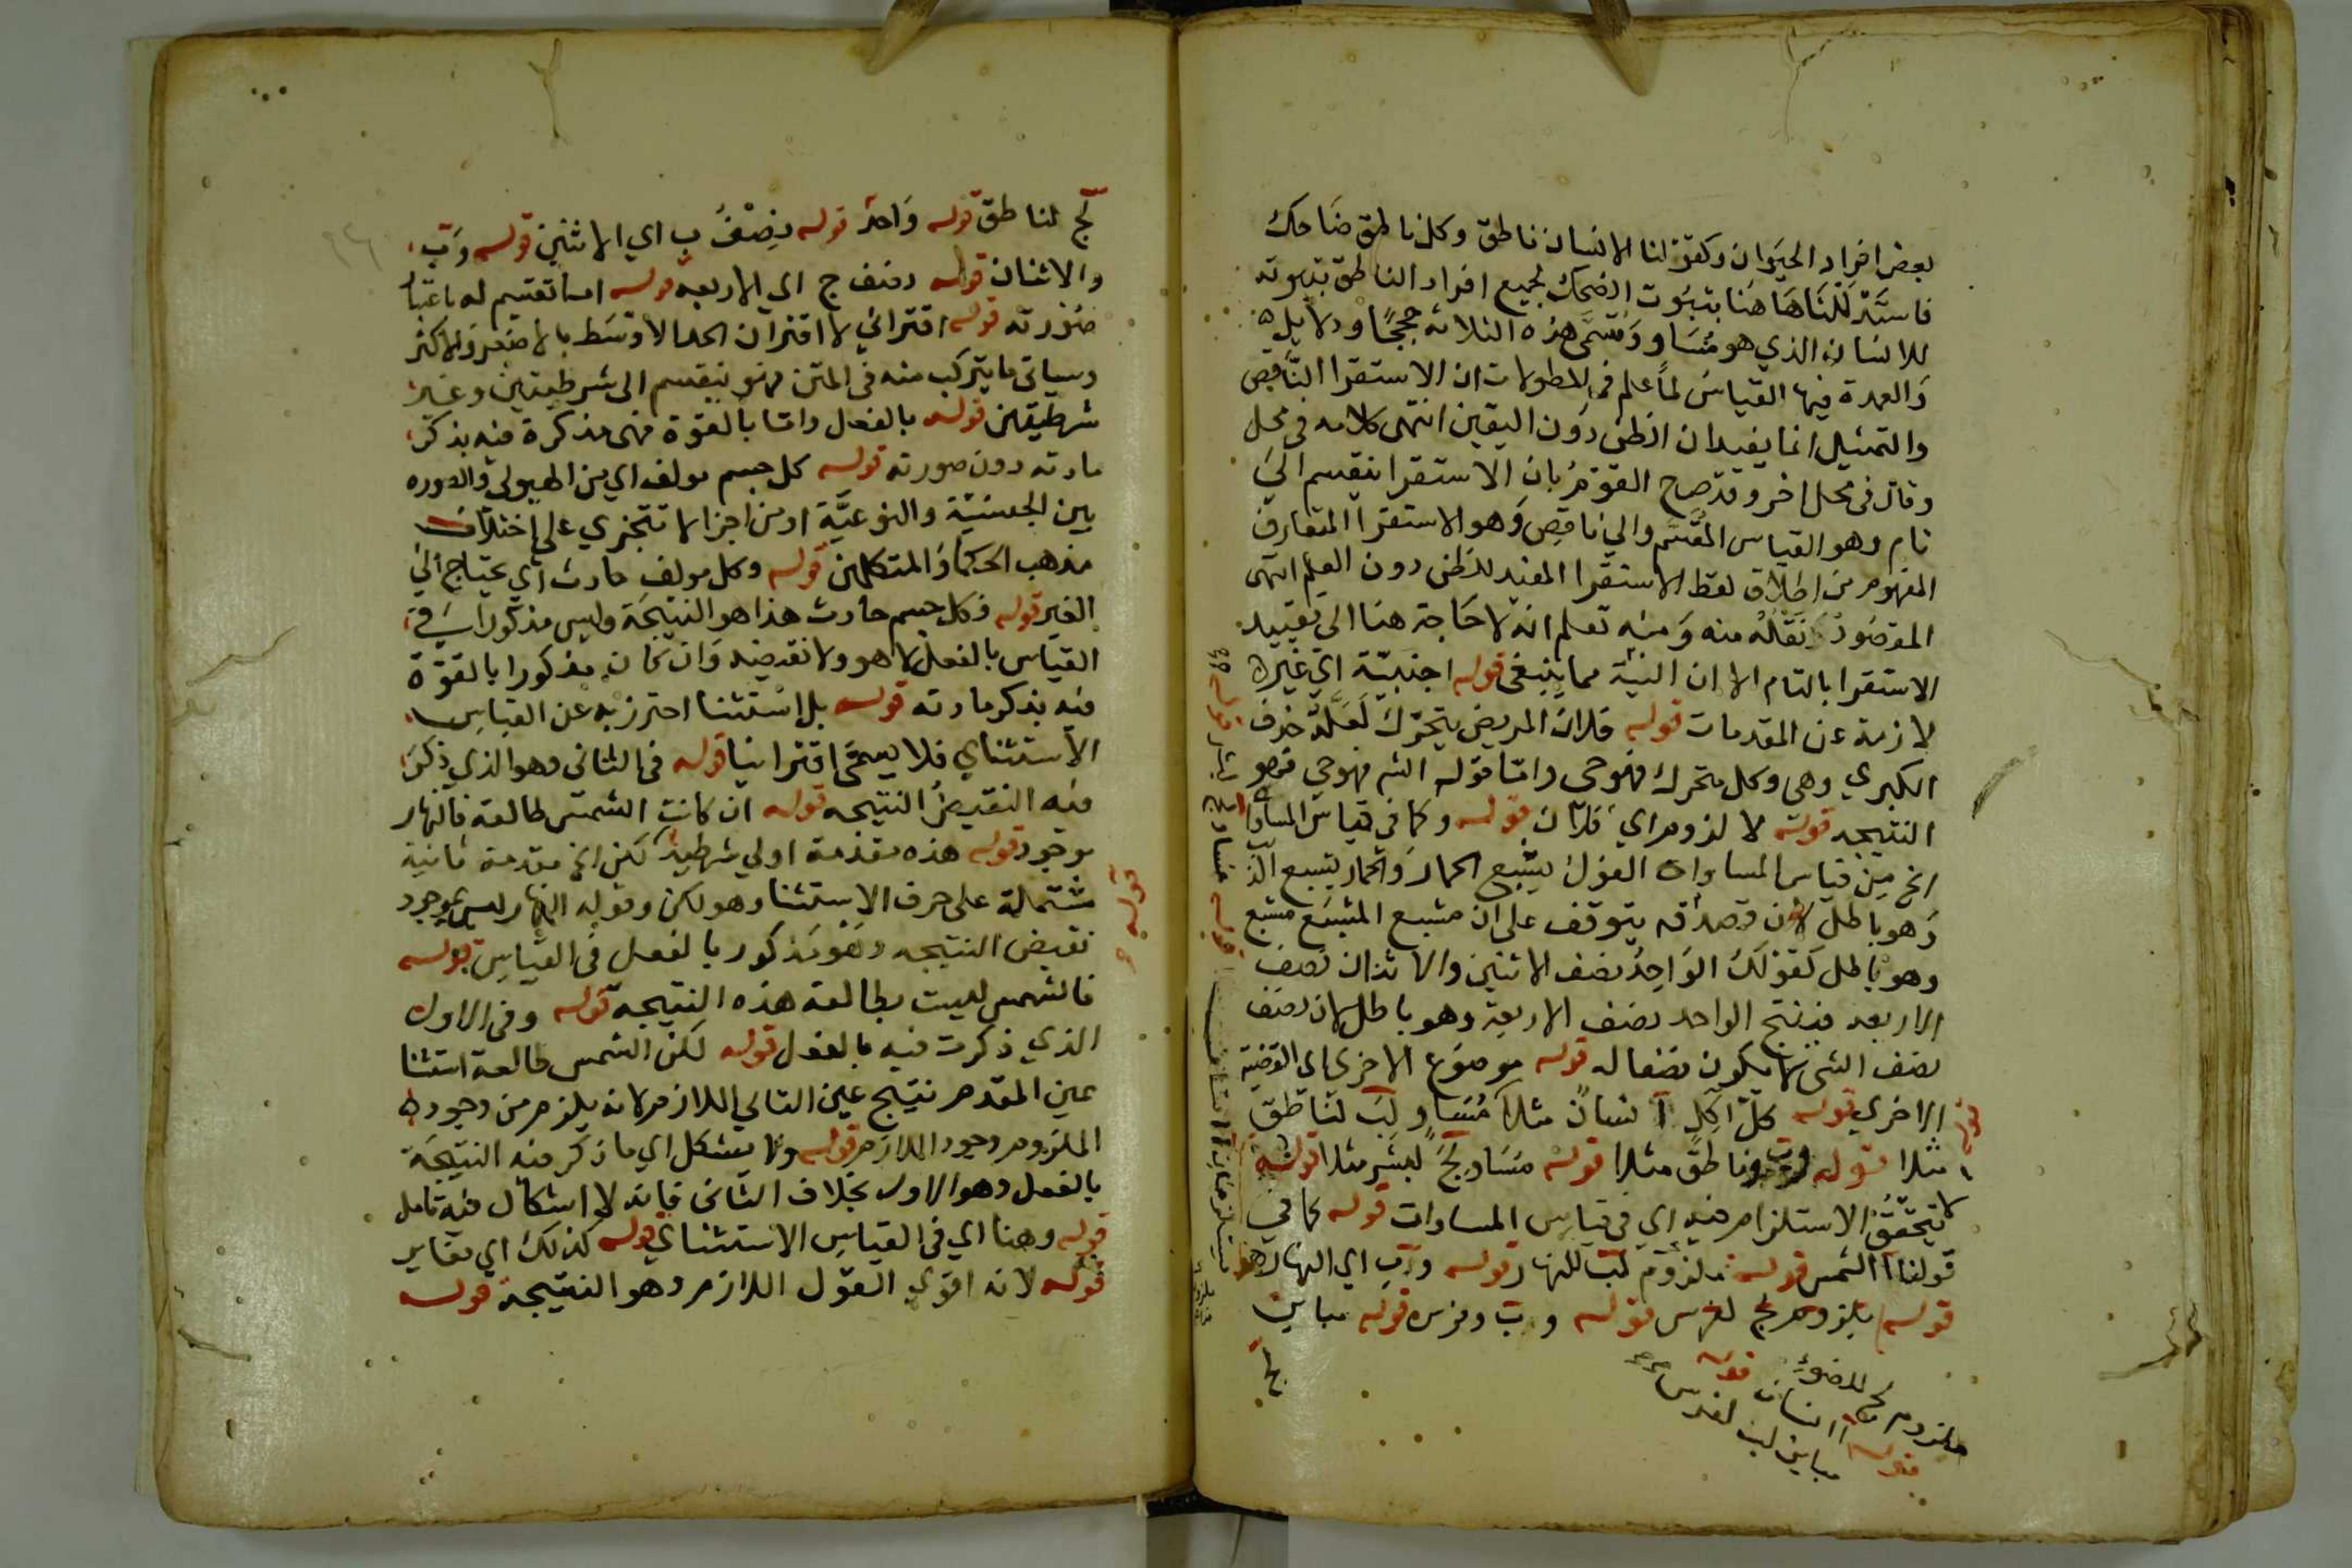 بعض افراد الحيوان وكقولنا الانسان ناطق وكل ناطق ضاحك
فاستدللنا هاهنا بثبوت الضحك لجميع افراد الناطق بثبوته
للانسان الذي هو مساو وتسمى هذه الثلاثة حججًا ودلايل
والعمدة فيها القياس لما علم في المطولات ان الاستقرا الناقص
والتمثيل انما يفيدان الظن دون اليقين انتهى كلامه في محل
وقال في محل اخر وقد صرح القوم بان الاستقرا ينقسم الى
تام وهو القياس المقسم والى ناقص وهو الاستقرا المتعارف
المفهوم من اطلاق لفظ الاستقرا المفيد للظن دون العلم انتهى
المقصود نقله منه ومنه تعلم انه لا حاجة هنا الى تقييد
الاستقرا بالتام الا ان النية مما ينبغي قوله اجنبية اي غير
لازمة عن المقدمات قوله فلان المريض يتحرك لعله حذف
الكبرى وهى وكل متحرك فهو حى واما قوله الشر فهو حي فهو
النتيجه قوله لا لزوم اي فلان قوله وكما في قياس المساواة
الخ من قياس المساواة القول يتبع الحمار والحمار يتبع
وهو باطل لان صدقه يتوقف على ان متبع المتبع متبع
وهو باطل كقولك الواحد نصف الاثنين والاثنان نصف
الاربعه فينتج الواحد نصف الاربعة وهو باطل لان نصف
نصف الشى لا يكون نصفا له قوله موضوع الاخرى اي القضية
الاخرى قوله كل آكل آ انسان مثلا مساو لب لناطق
مثلا قوله وب وناطق مثلا قوله مساو لج لبشر مثلا قوله
لا يتحقق الاستلزام فيه اي في قياس المساوات قوله كما في
قولنا آ الشمس قوله ملزوم لب للنهار قوله وب اي النهار
قوله ملزوم لج لفرس قوله وب وفرس قوله مباين
ملزوم لج للضوء
قوله آ انسان قوله
مباين لب لفرس
لج لناطق قوله واحد قوله نصف ب اي الاثنين قوله وب
والاثنان قوله ونصف ج اي الاربعه قوله اما تقسيم له باعتبار
صورته قوله اقتراني لاقتران الحد الاوسط بالاصغر والاكبر
وسياتي ما يتركب منه في المتن فهو ينقسم الى شرطيتين وغير
شرطيتين قوله بالفعل واما بالقوة فهى مذكرة فيه بذكر
مادته دون صورته قوله كل جسم مولف اي من الهيولى والصوره
بين الجسمية والنوعية او من اجزا لا تتجزي على اختلاف
مذهب الحكما والمتكلمين قوله وكل مولف حادث اي يحتاج الى
الغير قوله فكل جسم حادث هذا هو النتيجة وليس مذكورا في
القياس بالفعل لا هو ولا نقيضه وان كان مذكورا بالقوة
فيه بذكر مادته قوله بل استثنا احترز به عن القياس
الاستثناي فلا يسمى اقترانيا قوله في الثاني وهو الذي ذكر
فيه النقيض النتيجه قوله ان كانت الشمس طالعة فالنهار
موجود قوله هذه مقدمة اولى شرطية لكن الخ مقدمة ثانية
مشتملة على حرف الاستثنا وهو لكن وقوله النهار ليس بموجود
نقيض النتيجه وهو مذكور بالفعل في القياس قوله
فالشمس ليست بطالعة هذه النتيجه قوله وفي الاول
الذي ذكرت فيه بالفعل قوله لكن الشمس طالعة استثنا
عين المقدم نتيج عين التالي اللازم لانه يلزم من وجود
الملزوم وجود اللازم قوله ولا يشكل اي ما ذكر فيه النتيجة
بالفعل وهو الاول بخلاف الثاني فانه لا اشكال فيه تامل
قوله وهنا اي في القياس الاستثناي قوله كذلك اي مغاير
قوله لانه اقوى القول اللازم وهو النتيجة قوله